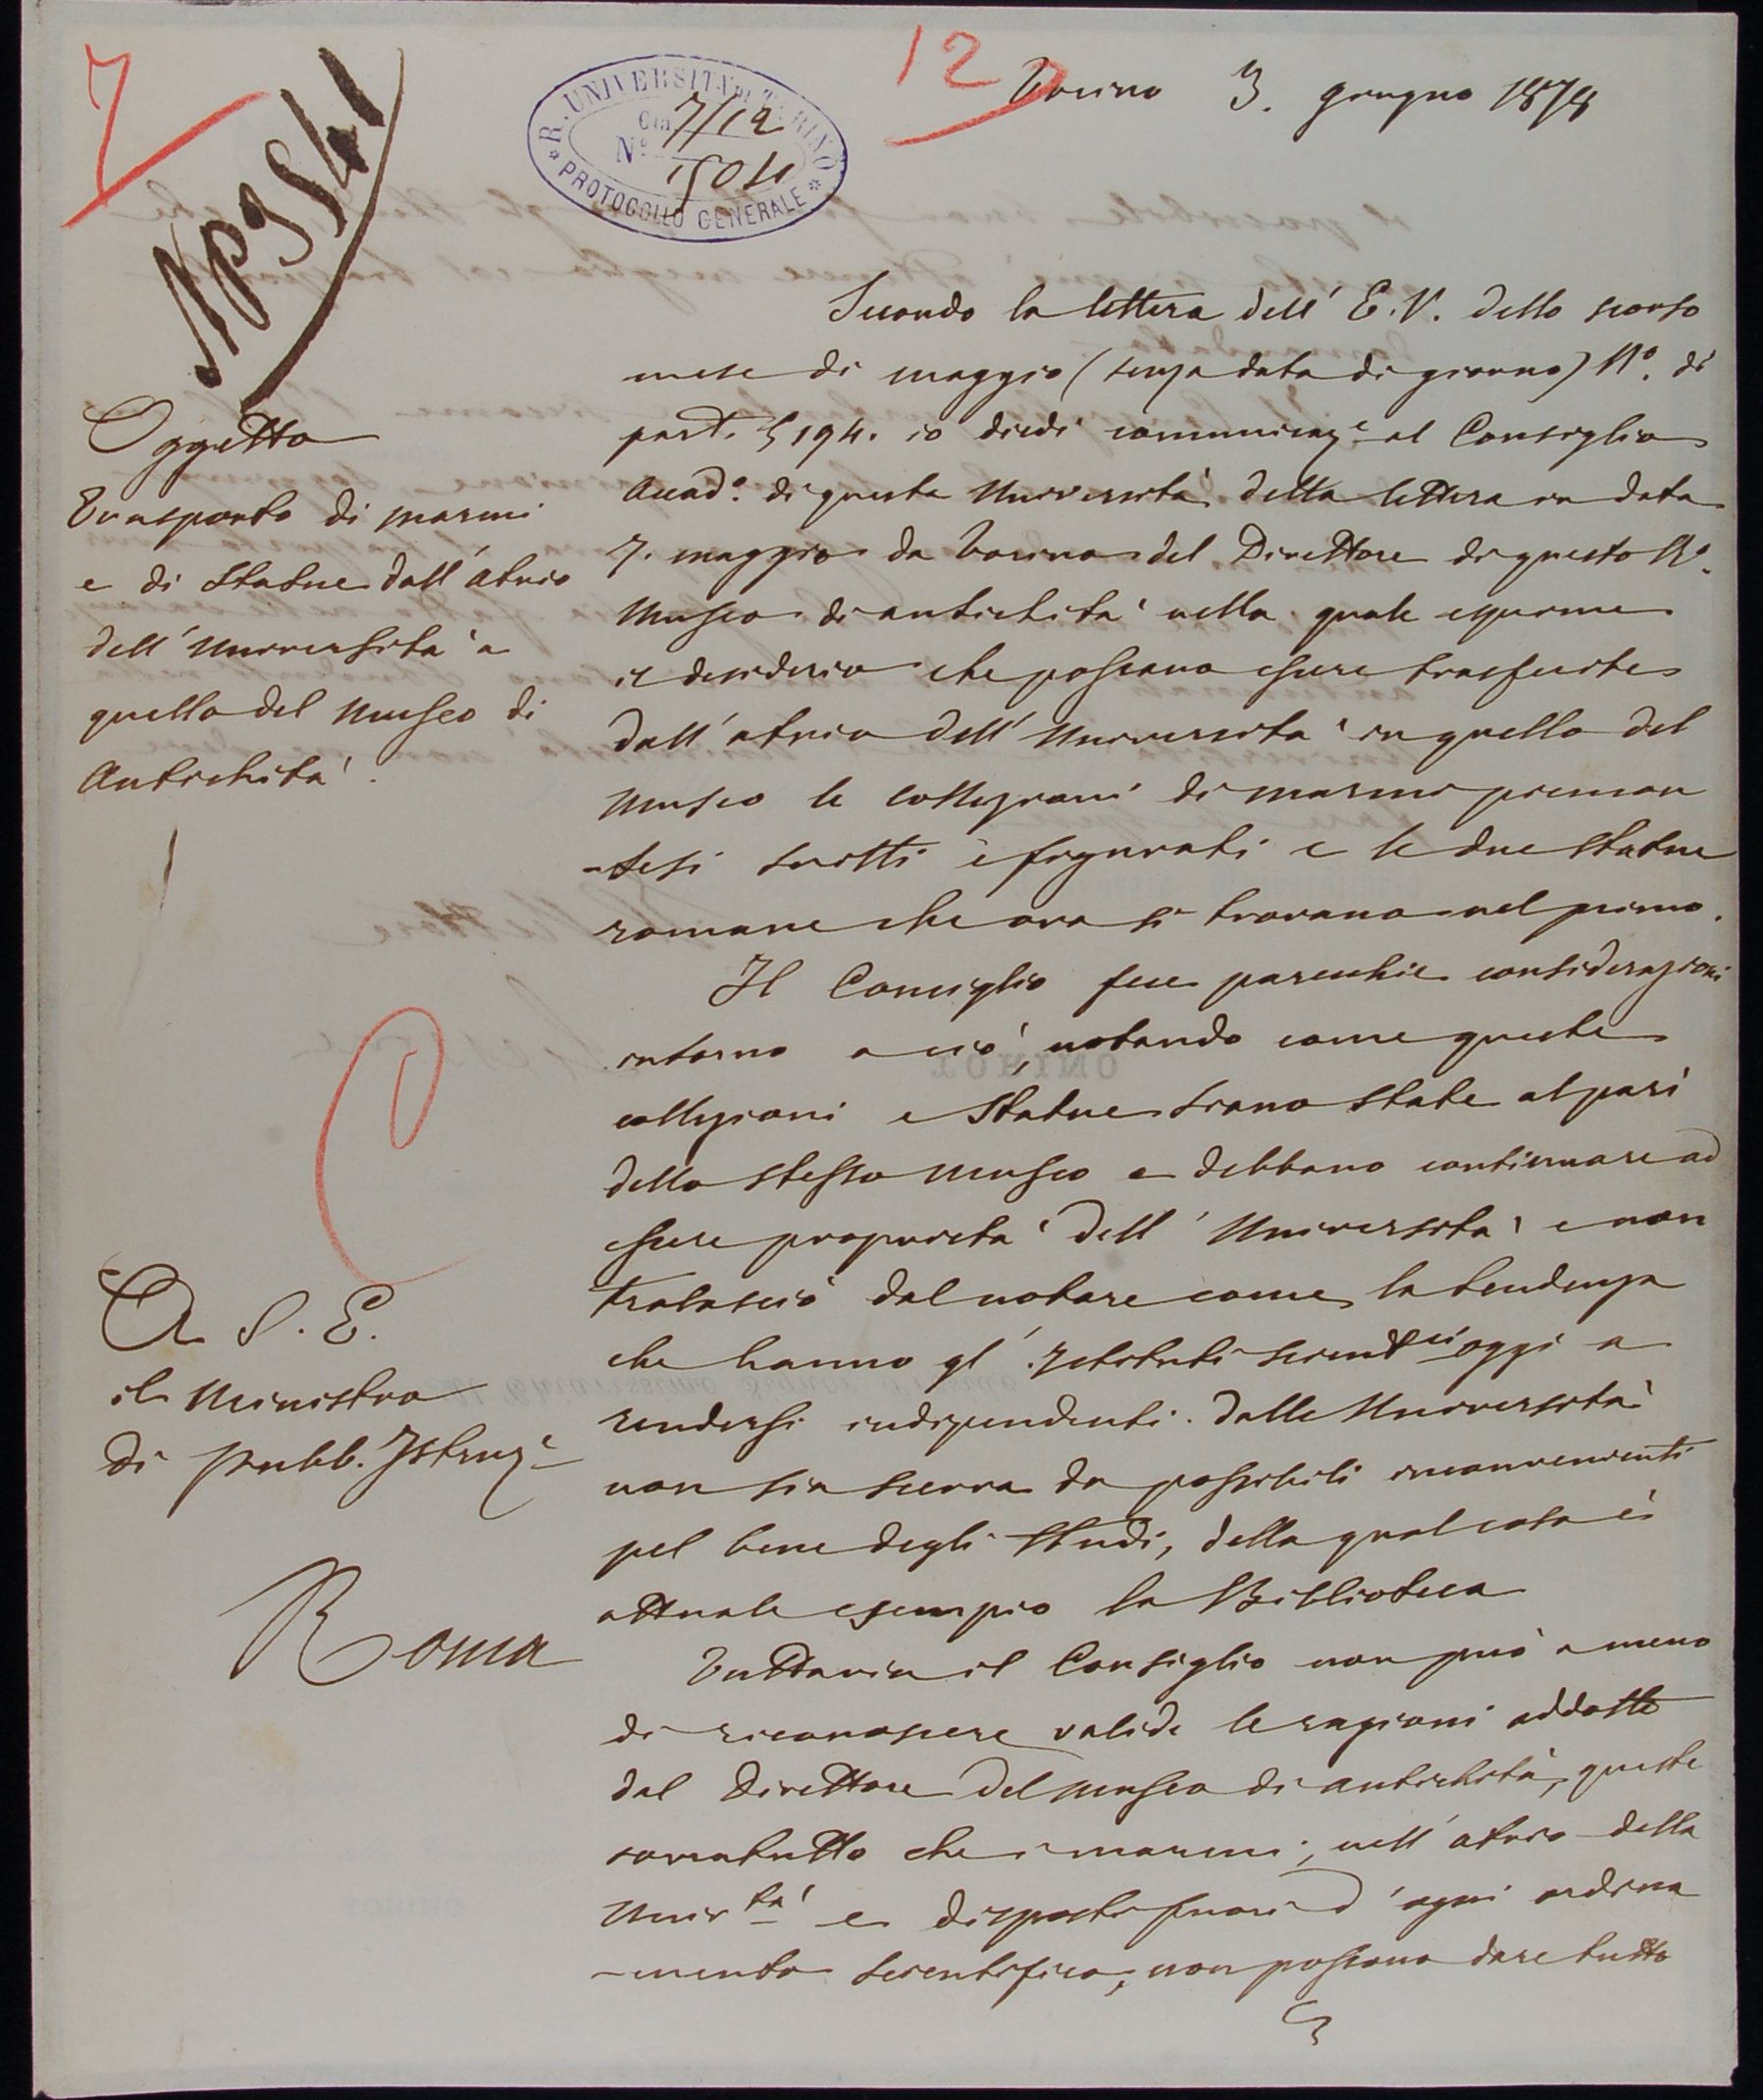 7
12
Torino 3. giugno 1878
R. UNIVERSITÀ DI TORINO
Cat. 7/12
N°
PROTOCOLLO GENERALE
Oggetto
Trasporto di marmi
e di statue dall'atrio
dell'Università a
quello del Museo di
Antichità.
A S. E.
il Ministro
di Pubb. Istruz.e
Roma
Secondo la lettera dell'E.V. dello scorso
mese di maggio (senza data di giorno) N°. di
part. 5194. io diedi comunicaz.e al Consiglio
Accad.o di questa Università della lettera in data
7. maggio da Torino del Direttore di questo R.o
Museo di antichità nella quale esprime
il desiderio che possano essere trasferite
dall'atrio dell'Università in quello del
Museo le collezioni di marmi piemon
-tesi scritti e figurati e le due statue
romane che ora si trovano nel primo.
Il Consiglio fece parecchie considerazioni
intorno a ciò, notando come queste
collezioni e statue siano state al pari
dello stesso Museo e debbano continuare ad
essere proprietà dell'Università e non
tralasciò dal notare come la tendenza
che hanno gl'Istituti scientifici oggi a
rendersi indipendenti dalle Università
non sia scevra da possibili inconvenienti
pel bene degli studi, della qual cosa è
attuale esempio la Biblioteca
Tuttavia il Consiglio non può a meno
di riconoscere valide le ragioni addotte
dal Direttore del Museo di antichità, queste
sovratutto che i marmi, nell'atrio della
Univ.tà e disposti fuori d'ogni ordina
-mento scientifico, non possono dare tutto